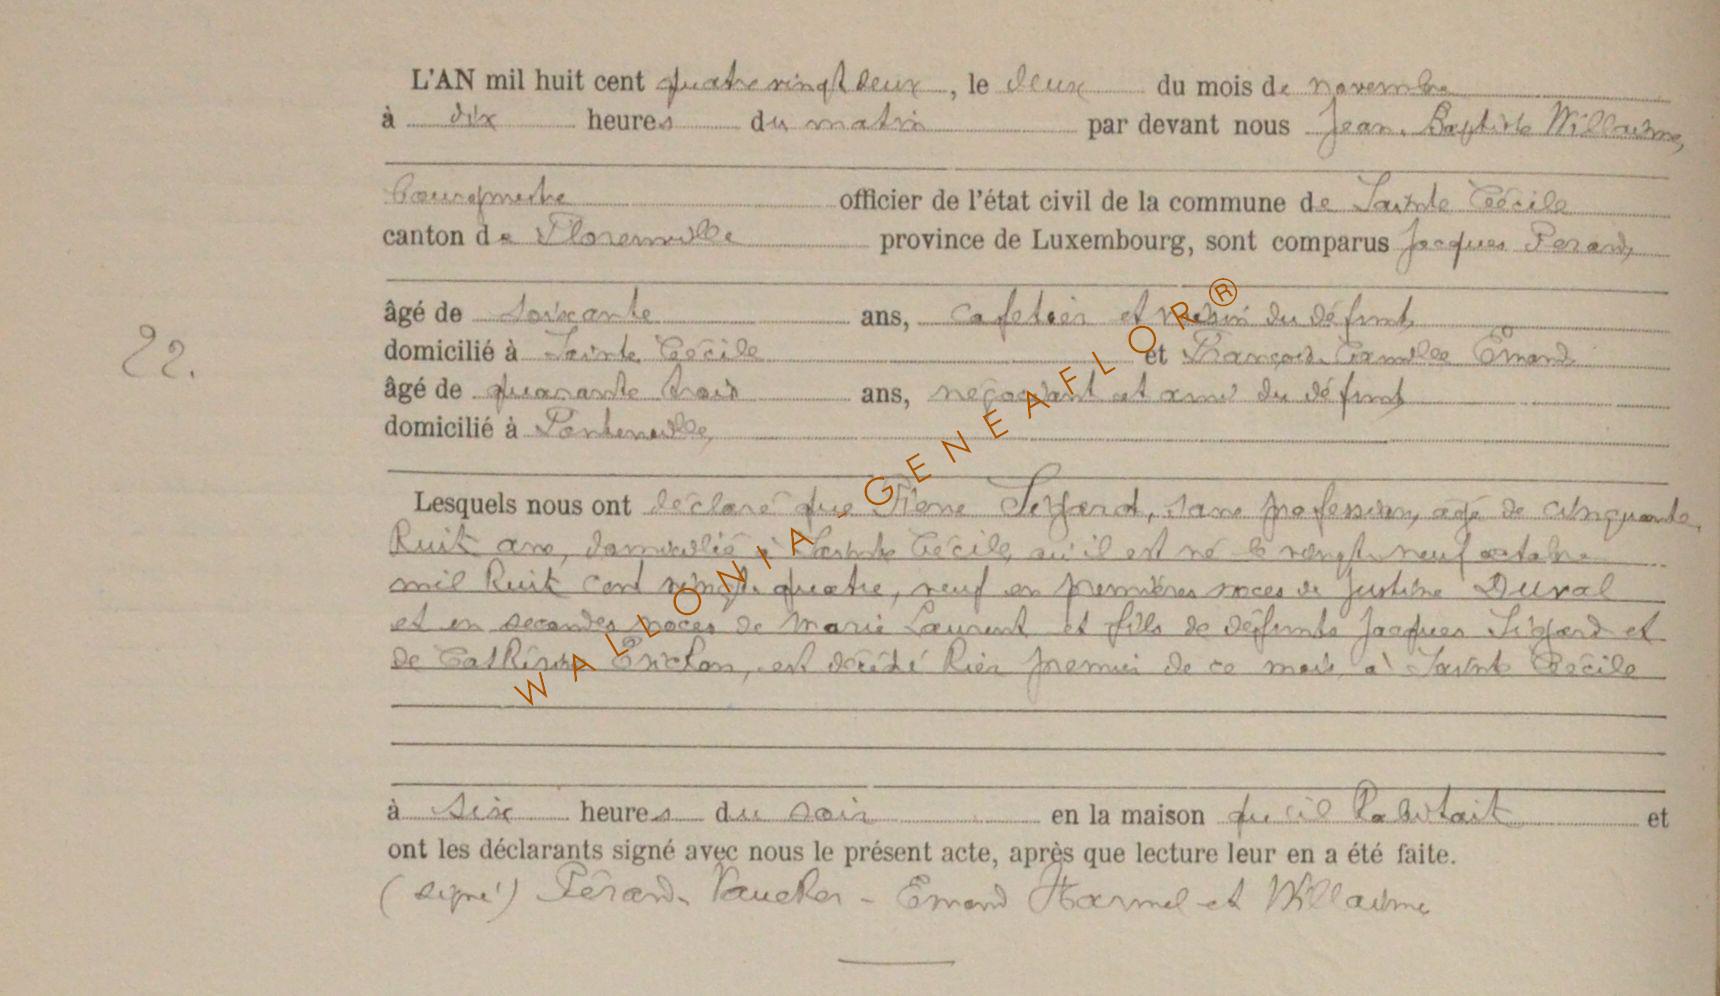 L'AN mil huit cent quatre vingt deux, le deux du mois de novembre
à dix heures du matin par devant nous Jean-Baptiste Willaime,
bourgmestre officier de l'état civil de la commune de Sainte Cécile
canton de Florenville province de Luxembourg, sont comparus Jacques Perard,
âgé de soixante ans, cafetier et voisin du défunt,
domicilié à Sainte Cécile et François Camille Emond
22.
âgé de quarante trois ans, négociant et ami du défunt
domicilié à
Lesquels nous ont déclaré que Pierre sans profession, agé de cinquante
huit ans, domicilié à Sainte Cécile, où il est né le vingt neuf octobre
mil huit cent vingt quatre, veuf en premières noces de Justine Duval
et en secondes noces de Marie Laurent et fils de défunts Jacques et
de Catherine est décédé hier premier de ce mois, à Sainte Cécile
à six heures du soir en la maison qu'il habitait et
ont les déclarants signé avec nous le présent acte, après que lecture leur en a été faite.
(signé) Pérard-Vaucher - Emond Harmel et Willaime
WALLONIA-GENEAFLOR®